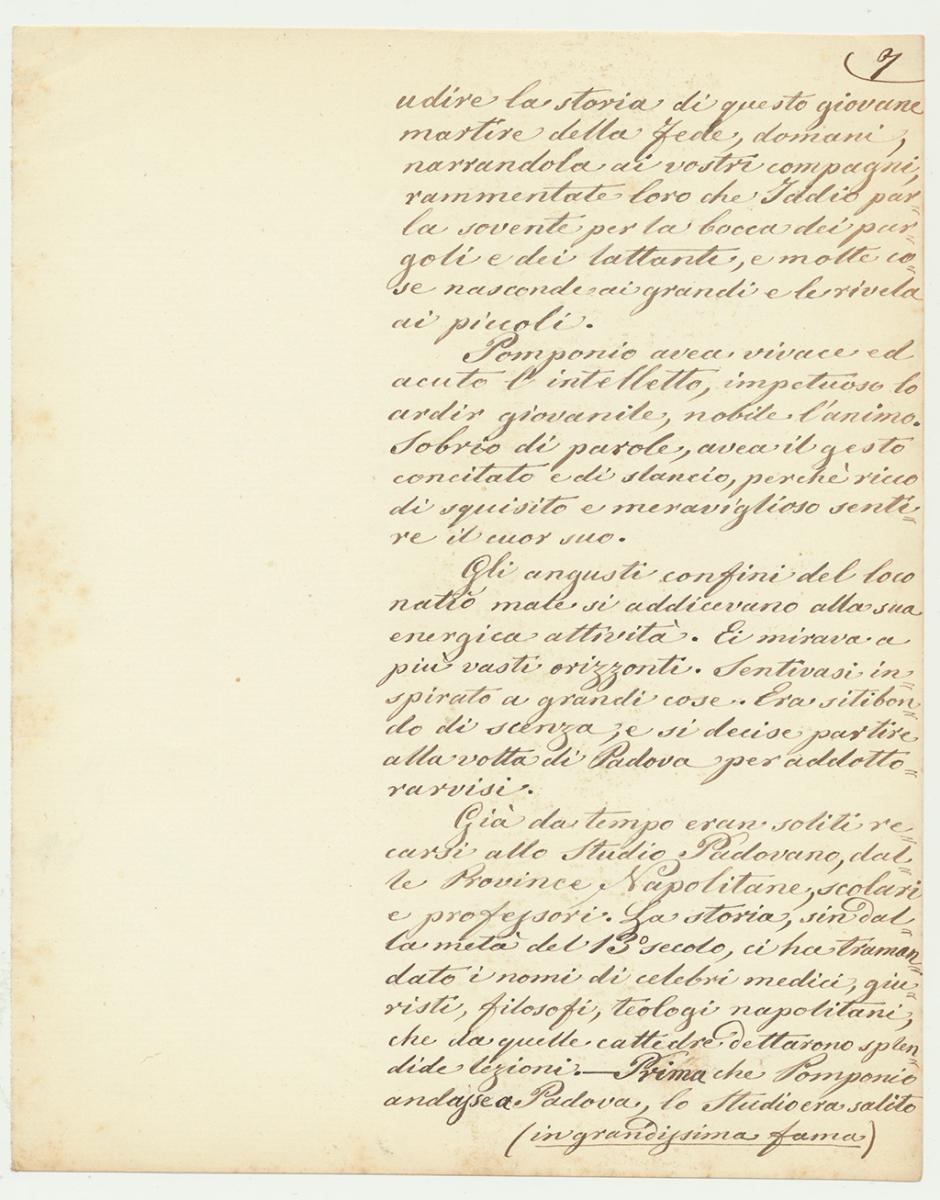 7
udire la storia di questo giovane
martire della Fede, domani,
narrandola ai vostri compagni,
rammentate loro che Iddio par=
la sovente per la bocca dei par=
goli e dei lattanti, e molte co=
se nasconde ai grandi e le rivela
ai piccoli.
Pomponio avea vivace ed
acuto l'intelletto, impetuoso lo
ardir giovanile, nobile l'animo.
Sobrio di parole, avea il gesto
concitato e di slancio, perchè ricco
di squisito e meraviglioso senti=
re il cuor suo.
Gli angusti confini del loco
natìo male si addicevano alla sua
energica attività. Ei mirava a
più vasti orizzonti. Sentivasi in=
spirato a grandi cose. Era sitibon=
do di scenza, e si decise partire
alla volta di Padova per addotto=
rarvisi.
Già da tempo eran soliti re=
carsi allo Studio Padovano, dal=
le Province Napolitane, scolari
e professori. La storia, sin dal=
la metà del 13º secolo, ci ha traman=
dato i nomi di celebri medici, giu=
risti, filosofi, teologi napolitani,
che da quelle cattedre dettarono splen=
dide lezioni. — Prima che Pomponio
andasse a Padova, lo Studio era salito
(in grandissima fama)